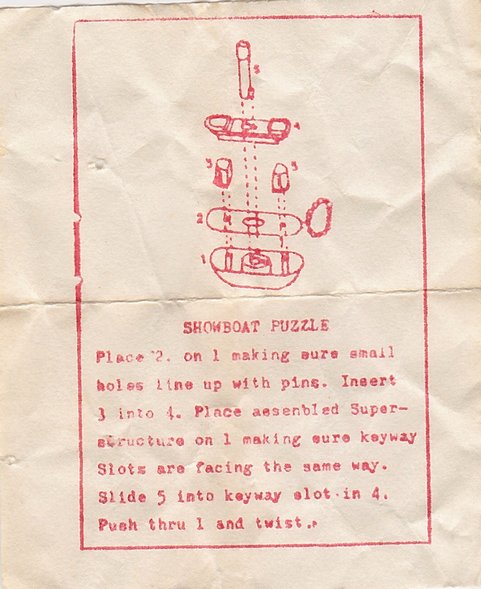 5
4
3 3
2
1
SHOWBOAT PUZZLE
Place 2. on 1 making sure small
holes line up with pins. Insert
3 into 4. Place assenbled Super-
structure on 1 making sure keyway
Slots are facing the same way.
Slide 5 into keyway slot in 4.
Push thru 1 and twist.